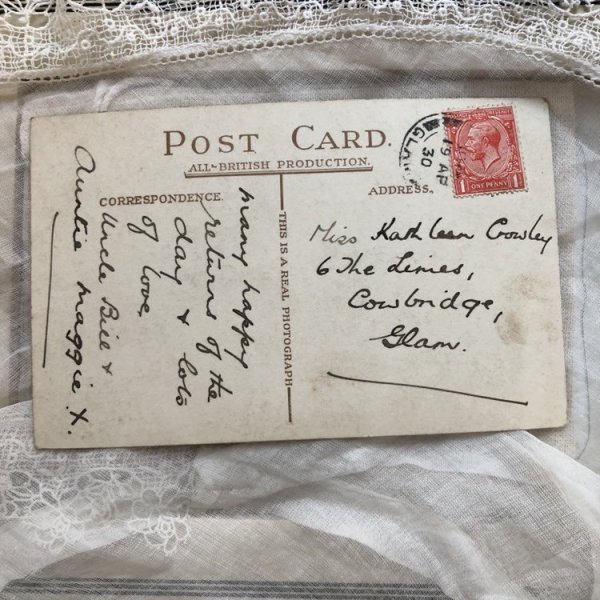 POST CARD.
ALL-BRITISH PRODUCTION.
CORRESPONDENCE.
ADDRESS.
THIS IS A REAL PHOTOGRAPH
many happy
returns of the
day & lots
of love,
Uncle Bill &
Auntie Maggie X.
Miss Kathleen Crowley
6 The Limes,
Cowbridge,
Glam.
19 AP
30
ONE PENNY